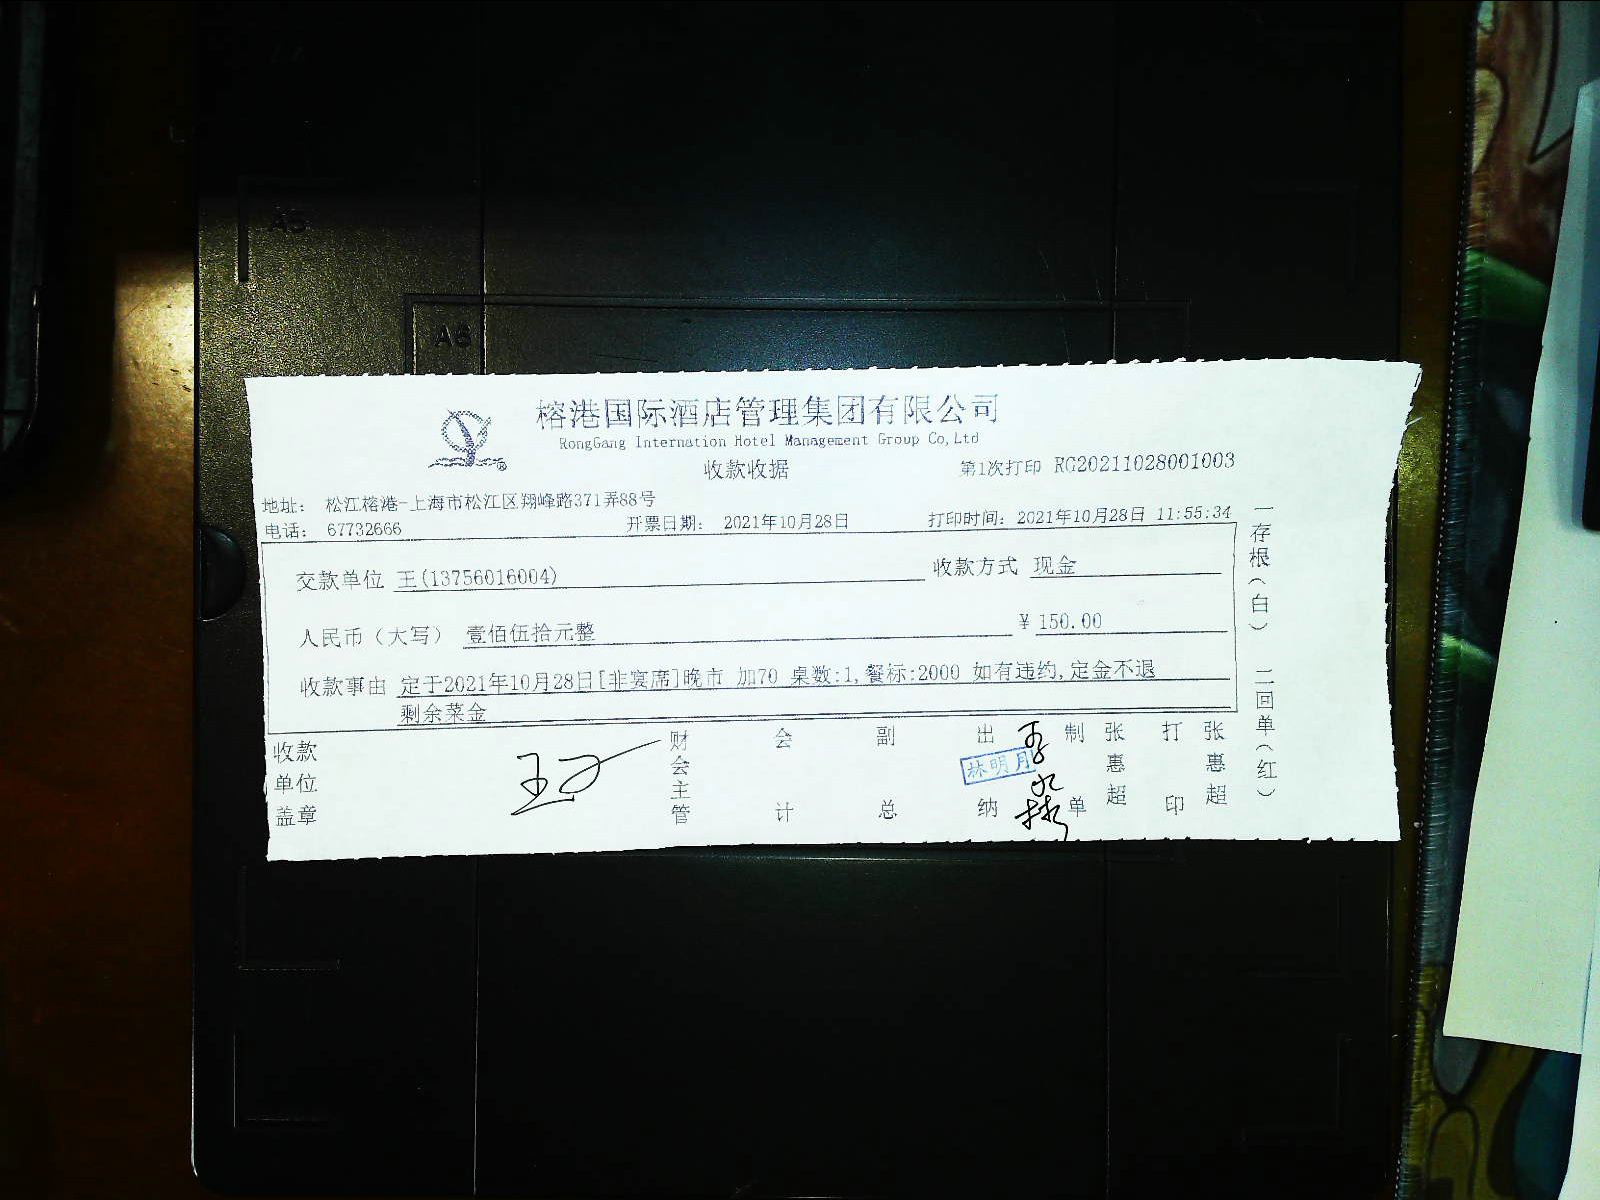 榕港国际酒店管理集团有限公司
RongGang Internation Hotel Management Group Co,Ltd
收款收据
第1次打印 RG20211028001003
地址： 松江榕港-上海市松江区翔峰路371弄88号
电话： 67732666 开票日期： 2021年10月28日 打印时间： 2021年10月28日 11:55:34
交款单位 王(13756016004) 收款方式 现金
人民币（大写） 壹佰伍拾元整 ¥ 150.00
收款事由 定于2021年10月28日[非宴席]晚市 加70 桌数:1,餐标:2000 如有违约,定金不退
剩余菜金
收款单位盖章
财会主管 会计 副总 出纳 林明月 制单 张惠超 打印 张惠超
一存根（白） 二回单（红）
A5
A6